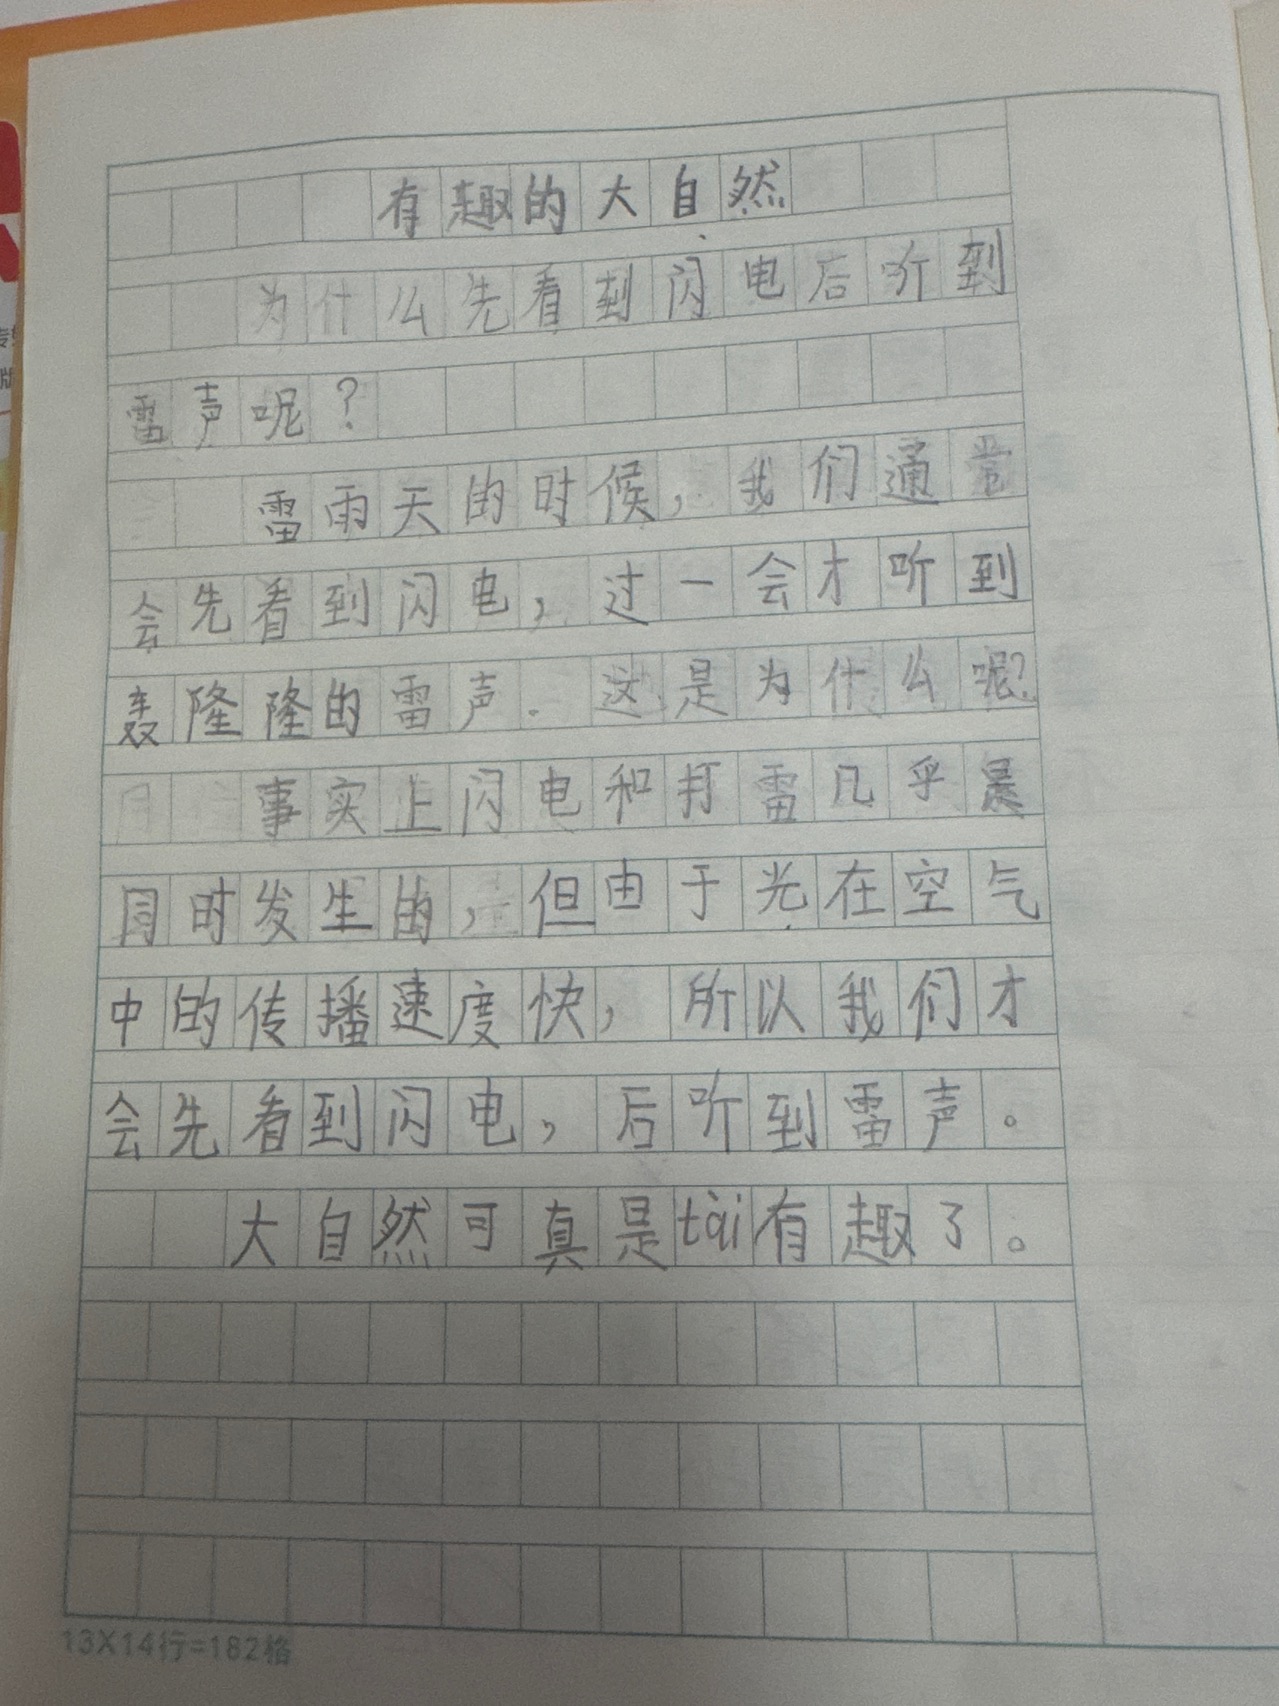 有趣的大自然
为什么先看到闪电后听到
雷声呢？
雷雨天的时候，我们通常
会先看到闪电，过一会才听到
轰隆隆的雷声。这是为什么呢？
事实上闪电和打雷几乎是
同时发生的，但由于光在空气
中的传播速度快，所以我们才
会先看到闪电，后听到雷声。
大自然可真是tài有趣了。
13X14行=182格